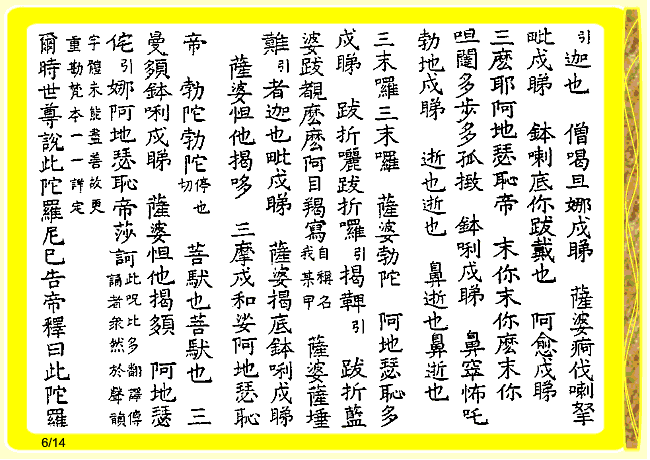 引迦也 僧喝旦娜戍睇 薩婆痾伐喇拏
毗戍睇 鉢喇底你跋戴也 阿愈戍睇
三麽耶阿地瑟恥帝 末你末你麽末你
呾闥多步多孤緻 鉢唎戍睇 鼻窣怖吒
勃地戍睇 逝也逝也 鼻逝也鼻逝也
三末囉三末囉 薩婆勃陀 阿地瑟恥多
戍睇 跋折囇跋折囉引揭鞞引 跋折藍
婆跋覩麽麽阿目羯寫自稱名我某甲 薩婆薩埵
難引者迦也毗戍睇 薩婆揭底鉢唎戍睇
薩婆怛他揭哆 三摩戍和娑阿地瑟恥
帝 勃陀勃陀停也切 菩馱也菩馱也 三
曼䫂鉢唎戍睇 薩婆怛他揭䫂 阿地瑟
侘引娜阿地瑟恥帝莎訶此呪比多翻譯傳誦者衆然於聲韻
字體未能盡善故更
重勘梵本一一詳定
爾時世尊說此陀羅尼已告帝釋曰此陀羅
6/14